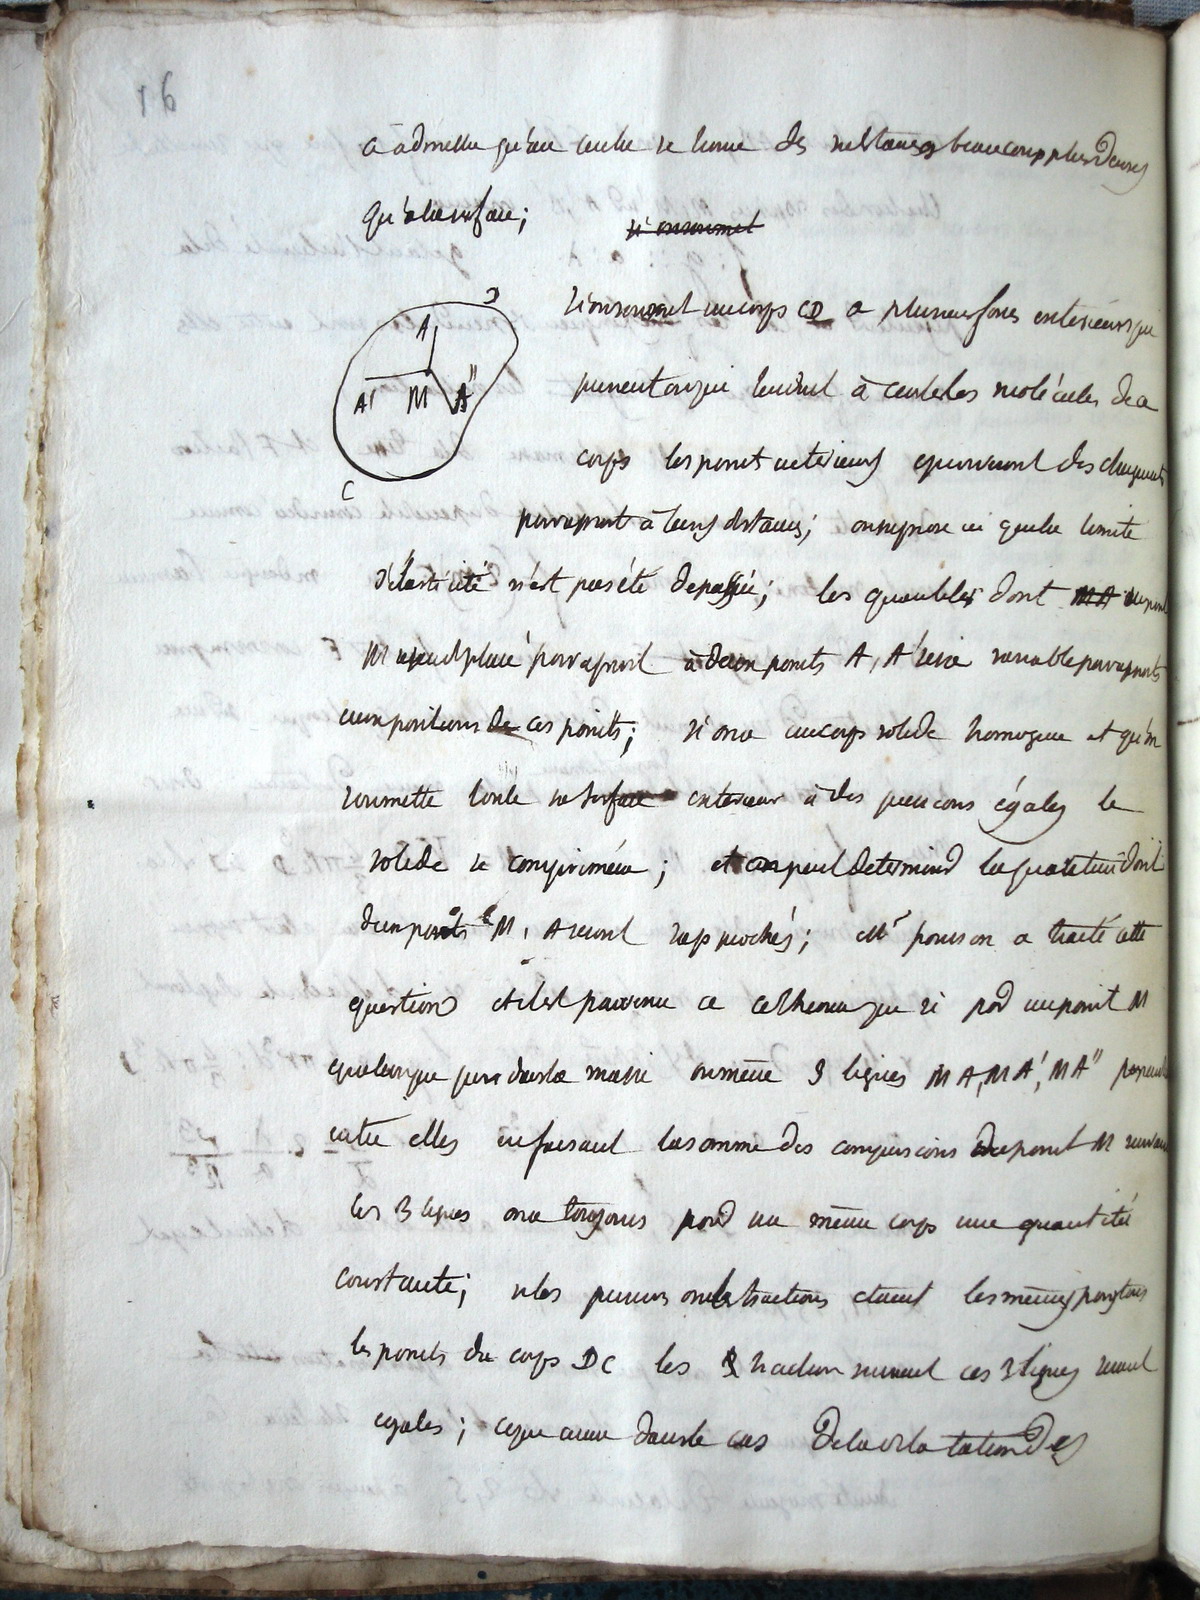 16
a admettre qu'au centre se trouve des substances beaucoup plus denses
qu'a la surface;
si on soumet
si on soumet un corps CD a plusieurs forces exterieures qui
pressent ou qui tendent à écarter les molécules de ce
corps les points interieurs eprouveront des changements
par rapport à leurs distances; on suppose ici que la limite
d'élasticité n'est pas été depassée; les quantités dont MA un point
M sera deplacé par rapport à deux points A, A' sera variable par rapport
aux positions de ces points; si on a un corps solide homogene et qu'on
soumette toute sa surface exterieur à des pressions égales le
solide se comprimera; et on peut determiner la quantité dont
deux points M, A seront rapprochés; Mr poisson a traité cette
question et il est parvenu a ce theoreme que si par un point M
quelconque pris dans la masse on mene 3 lignes MA, MA', MA" perpend
entre elles en faisant la somme des compressions du point M suivant
les 3 lignes on a toujours pour un même corps une quantité
constante; si les pressions ou les tractions etaient les mêmes pour tous
les points du corps DC les traction suivant ces 3 lignes seront
egales; ce qui arrive dans le cas de la dilatation des
D
A
A'
M
A"
C